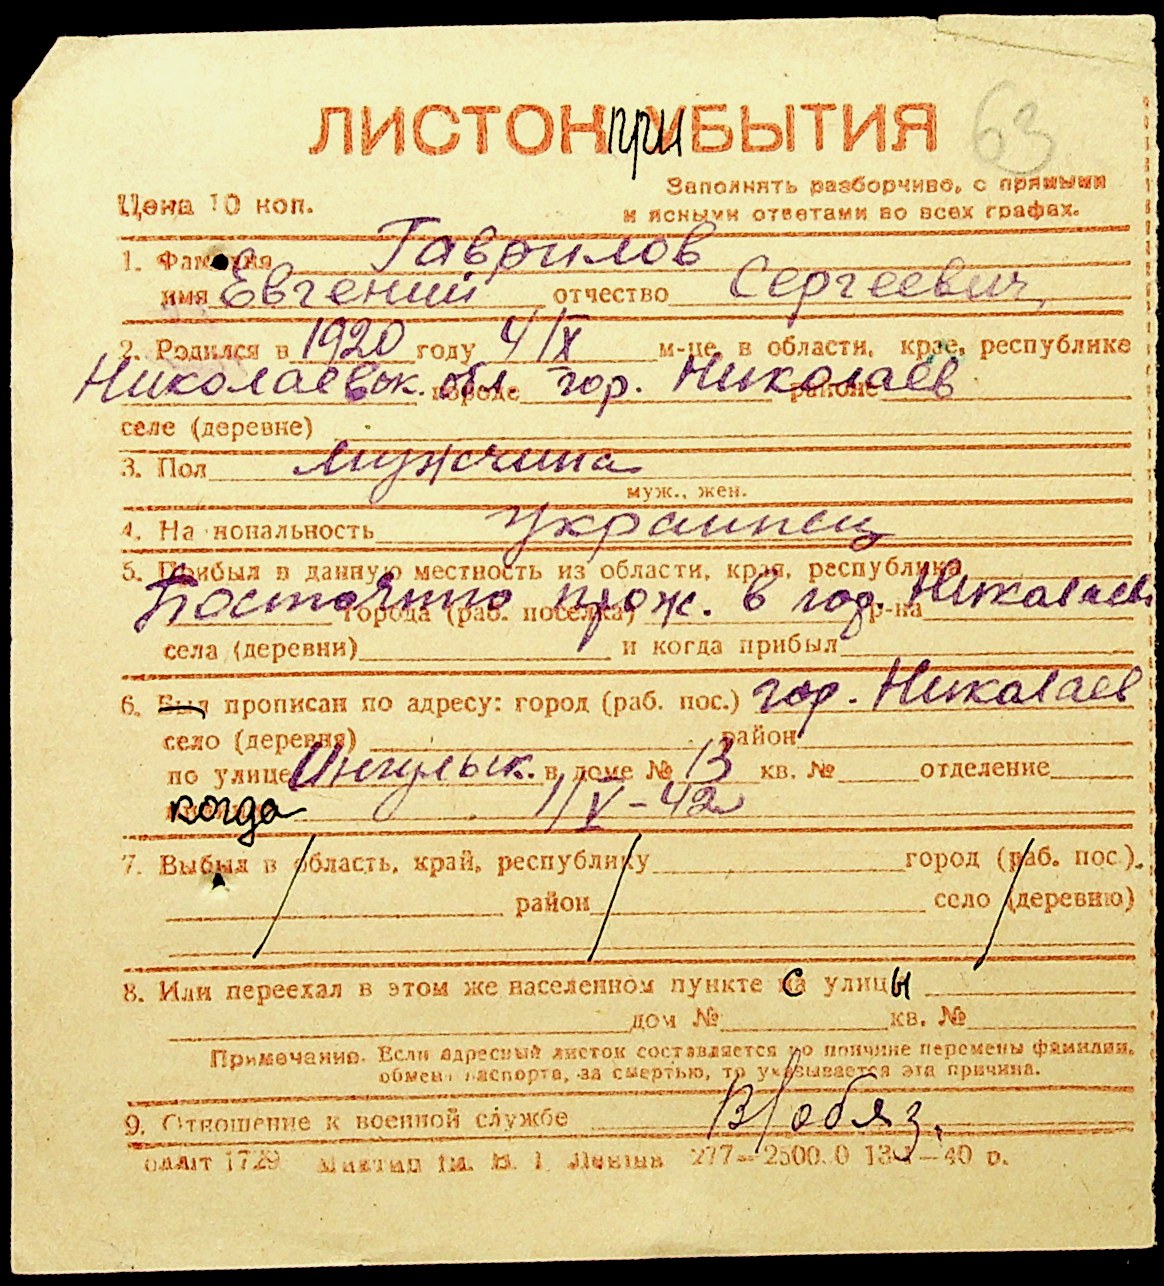 63
ЛИСТОК ПРИБЫТИЯ
Цена 10 коп.
Заполнять разборчиво, с прямыми
и ясными ответами во всех графах.
1. Фамилия Гаврилов
имя Евгений отчество Сергеевич
2. Родился в 1920 году 4/IX м-це, в области, крае, республике
Николаевск. обл. городе гор. Николаев районе
селе (деревне)
3. Пол мужчина
муж., жен.
4. Национальность украинец
5. Прибыл в данную местность из области, края, республики
Постоянно прож. в гор. Николаев
города (раб. поселка) р-на
села (деревни) и когда прибыл
6. Был прописан по адресу: город (раб. пос.) гор. Николаев
село (деревня) район
по улице Ингульск. в доме № 13 кв. № отделение
когда 1/V-42
7. Выбыл в область, край, республику город (раб. пос.)
район село (деревню)
8. Или переехал в этом же населенном пункте с улицы
дом № кв. №
Примечание. Если адресный листок составляется по причине перемены фамилии,
обмена паспорта, за смертью, то указывается эта причина.
9. Отношение к военной службе В/обяз.
1729 им. В. И. Ленина 277—2500 40 р.